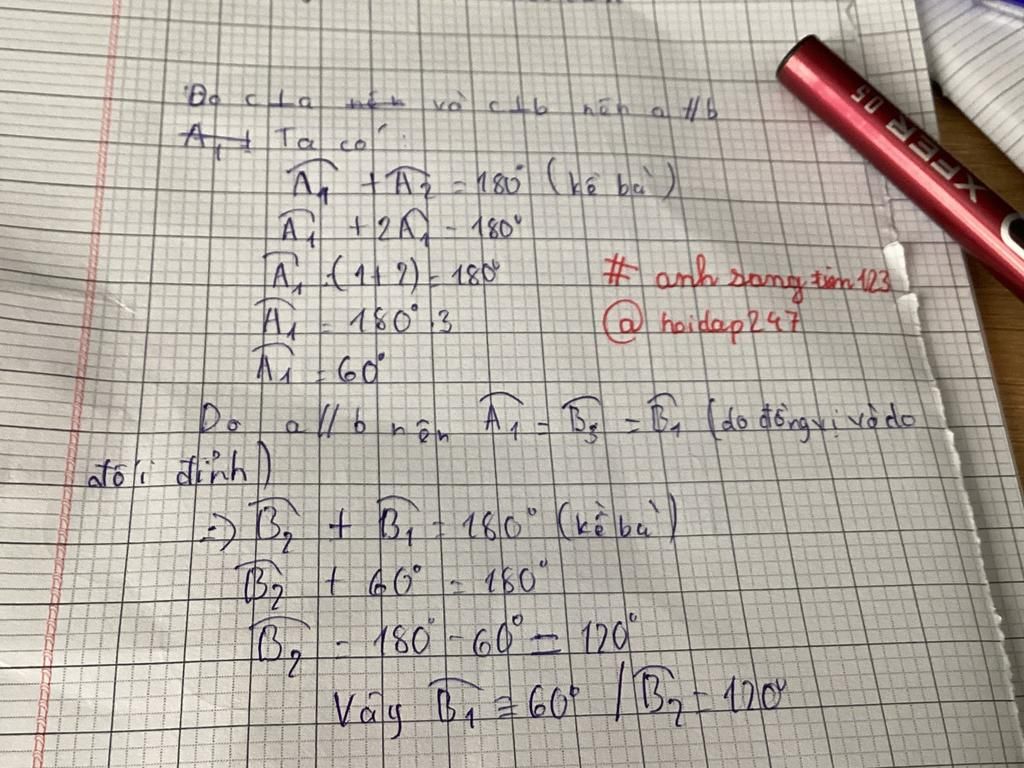 Do c⊥a và c⊥b nên a // b
Ta có:
A₁ + A₂ = 180° (kề bù)
A₁ + 2A₁ = 180°
A₁ . (1 + 2) = 180°
A₁ = 180° : 3
# anh sang tim 123
@ hoidap247
A₁ = 60°
Do a // b nên A₁ = B₃ = B₁ (do đồng vị và do
đối đỉnh)
=> B₂ + B₁ = 180° (kề bù)
B₂ + 60° = 180°
B₂ = 180° - 60° = 120°
Vậy B₁ = 60° / B₂ = 120°
XFER 05